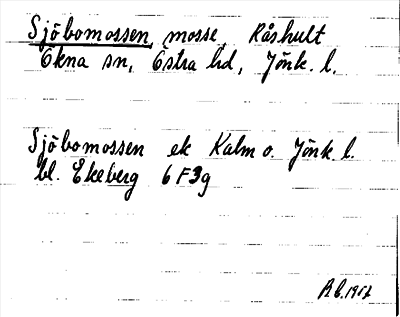 Sjöbomossen, mosse, Råshult
Ökna sn, Östra hd, Jönk. l.
Sjöbomossen ek Kalm o. Jönk. l.
bl. Ekeberg 6 F 3g